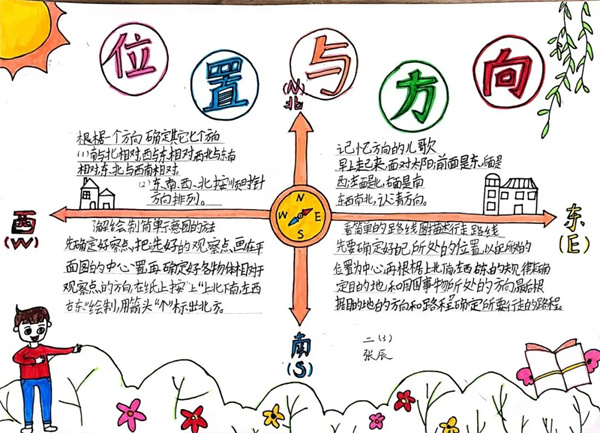 位置与方向
(N)
北
根据一个方向确定其它七个方向
(1)南与北相对,西与东相对西北与东南
相对,东北与西南相对.
(2)东、南、西、北按顺时针
方向排列。
记忆方向的儿歌
早上起来,面对太阳,前面是东,后面
西,左面是北,右面是南
东西南北,认清方向。
西
(W)
东
(E)
N
W
E
S
绘制简单示意图的方法
先确定好观察点,把选好的观察点,画在平
面图的中心位置,再确定好各物体相对于
观察点的方向在纸上按"上北下南,左西
右东"绘制,用箭头"个"标出北方。
看简单的路线图描述行走路线
先要确定好自己所处的位置,以自己所处的
位置为中心,再根据上北下南,左西右东的规律确
定目的地和周围事物所处的方向,最后根
据目的地的方向和路程确定所要行走的路程。
南
(S)
二(3)
张辰